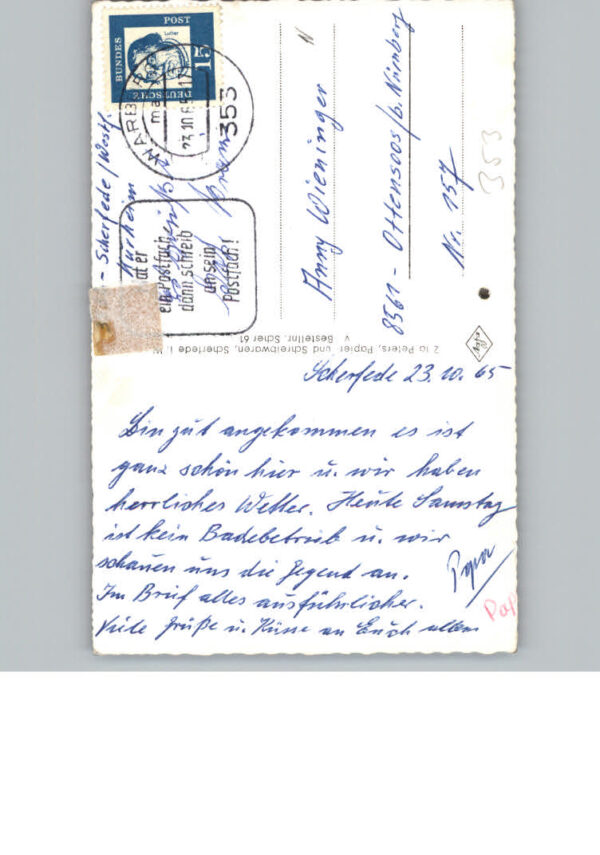 Scherfede 23.10.65
Bin gut angekommen es ist
ganz schön hier u. wir haben
herrliches Wetter. Heute Samstag
ist kein Badebetrieb u. wir
schauen uns die Gegend an.
Im Brief alles ausführlicher.
Viele Grüße u. Küsse an Euch allen
Papa
Pap
Anny Wieninger
8561 - Ottensoos/b. Nürnberg
Nr. 157
353
DEUTSCHE BUNDESPOST
15
Luther
WARBURG
23.10.65
353
ein Postfach
dann schreib
unsein
Postfach!
- Scherfede/Westf.
Peters, Papier- und Schreibwaren, Scherfede i. W.
Bestellnr. Scher 61
Agfa